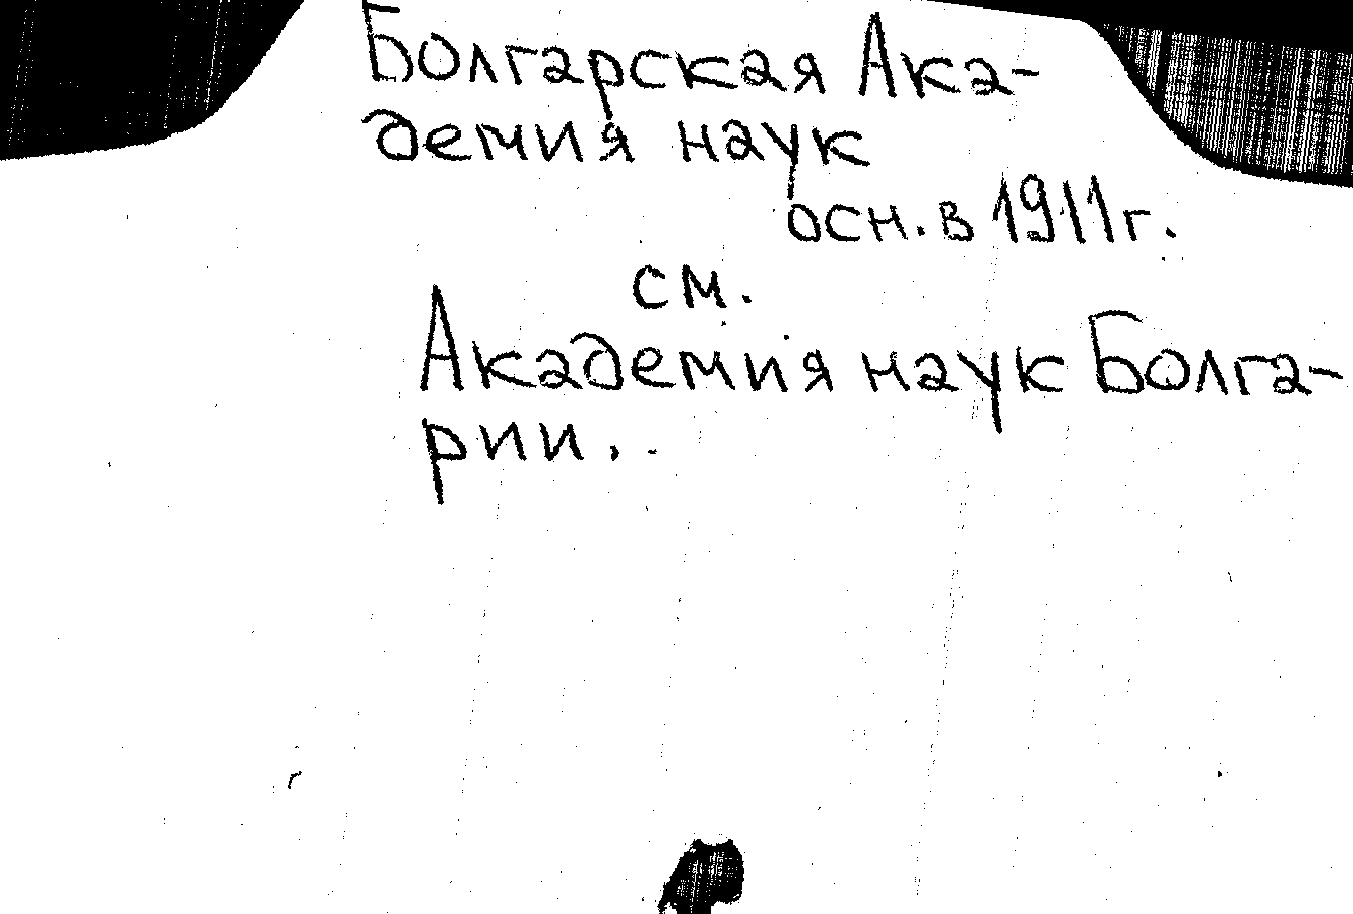 Болгарская Ака-
демия наук
осн. в 1911 г.
см.
Академия наук Болга-
рии.